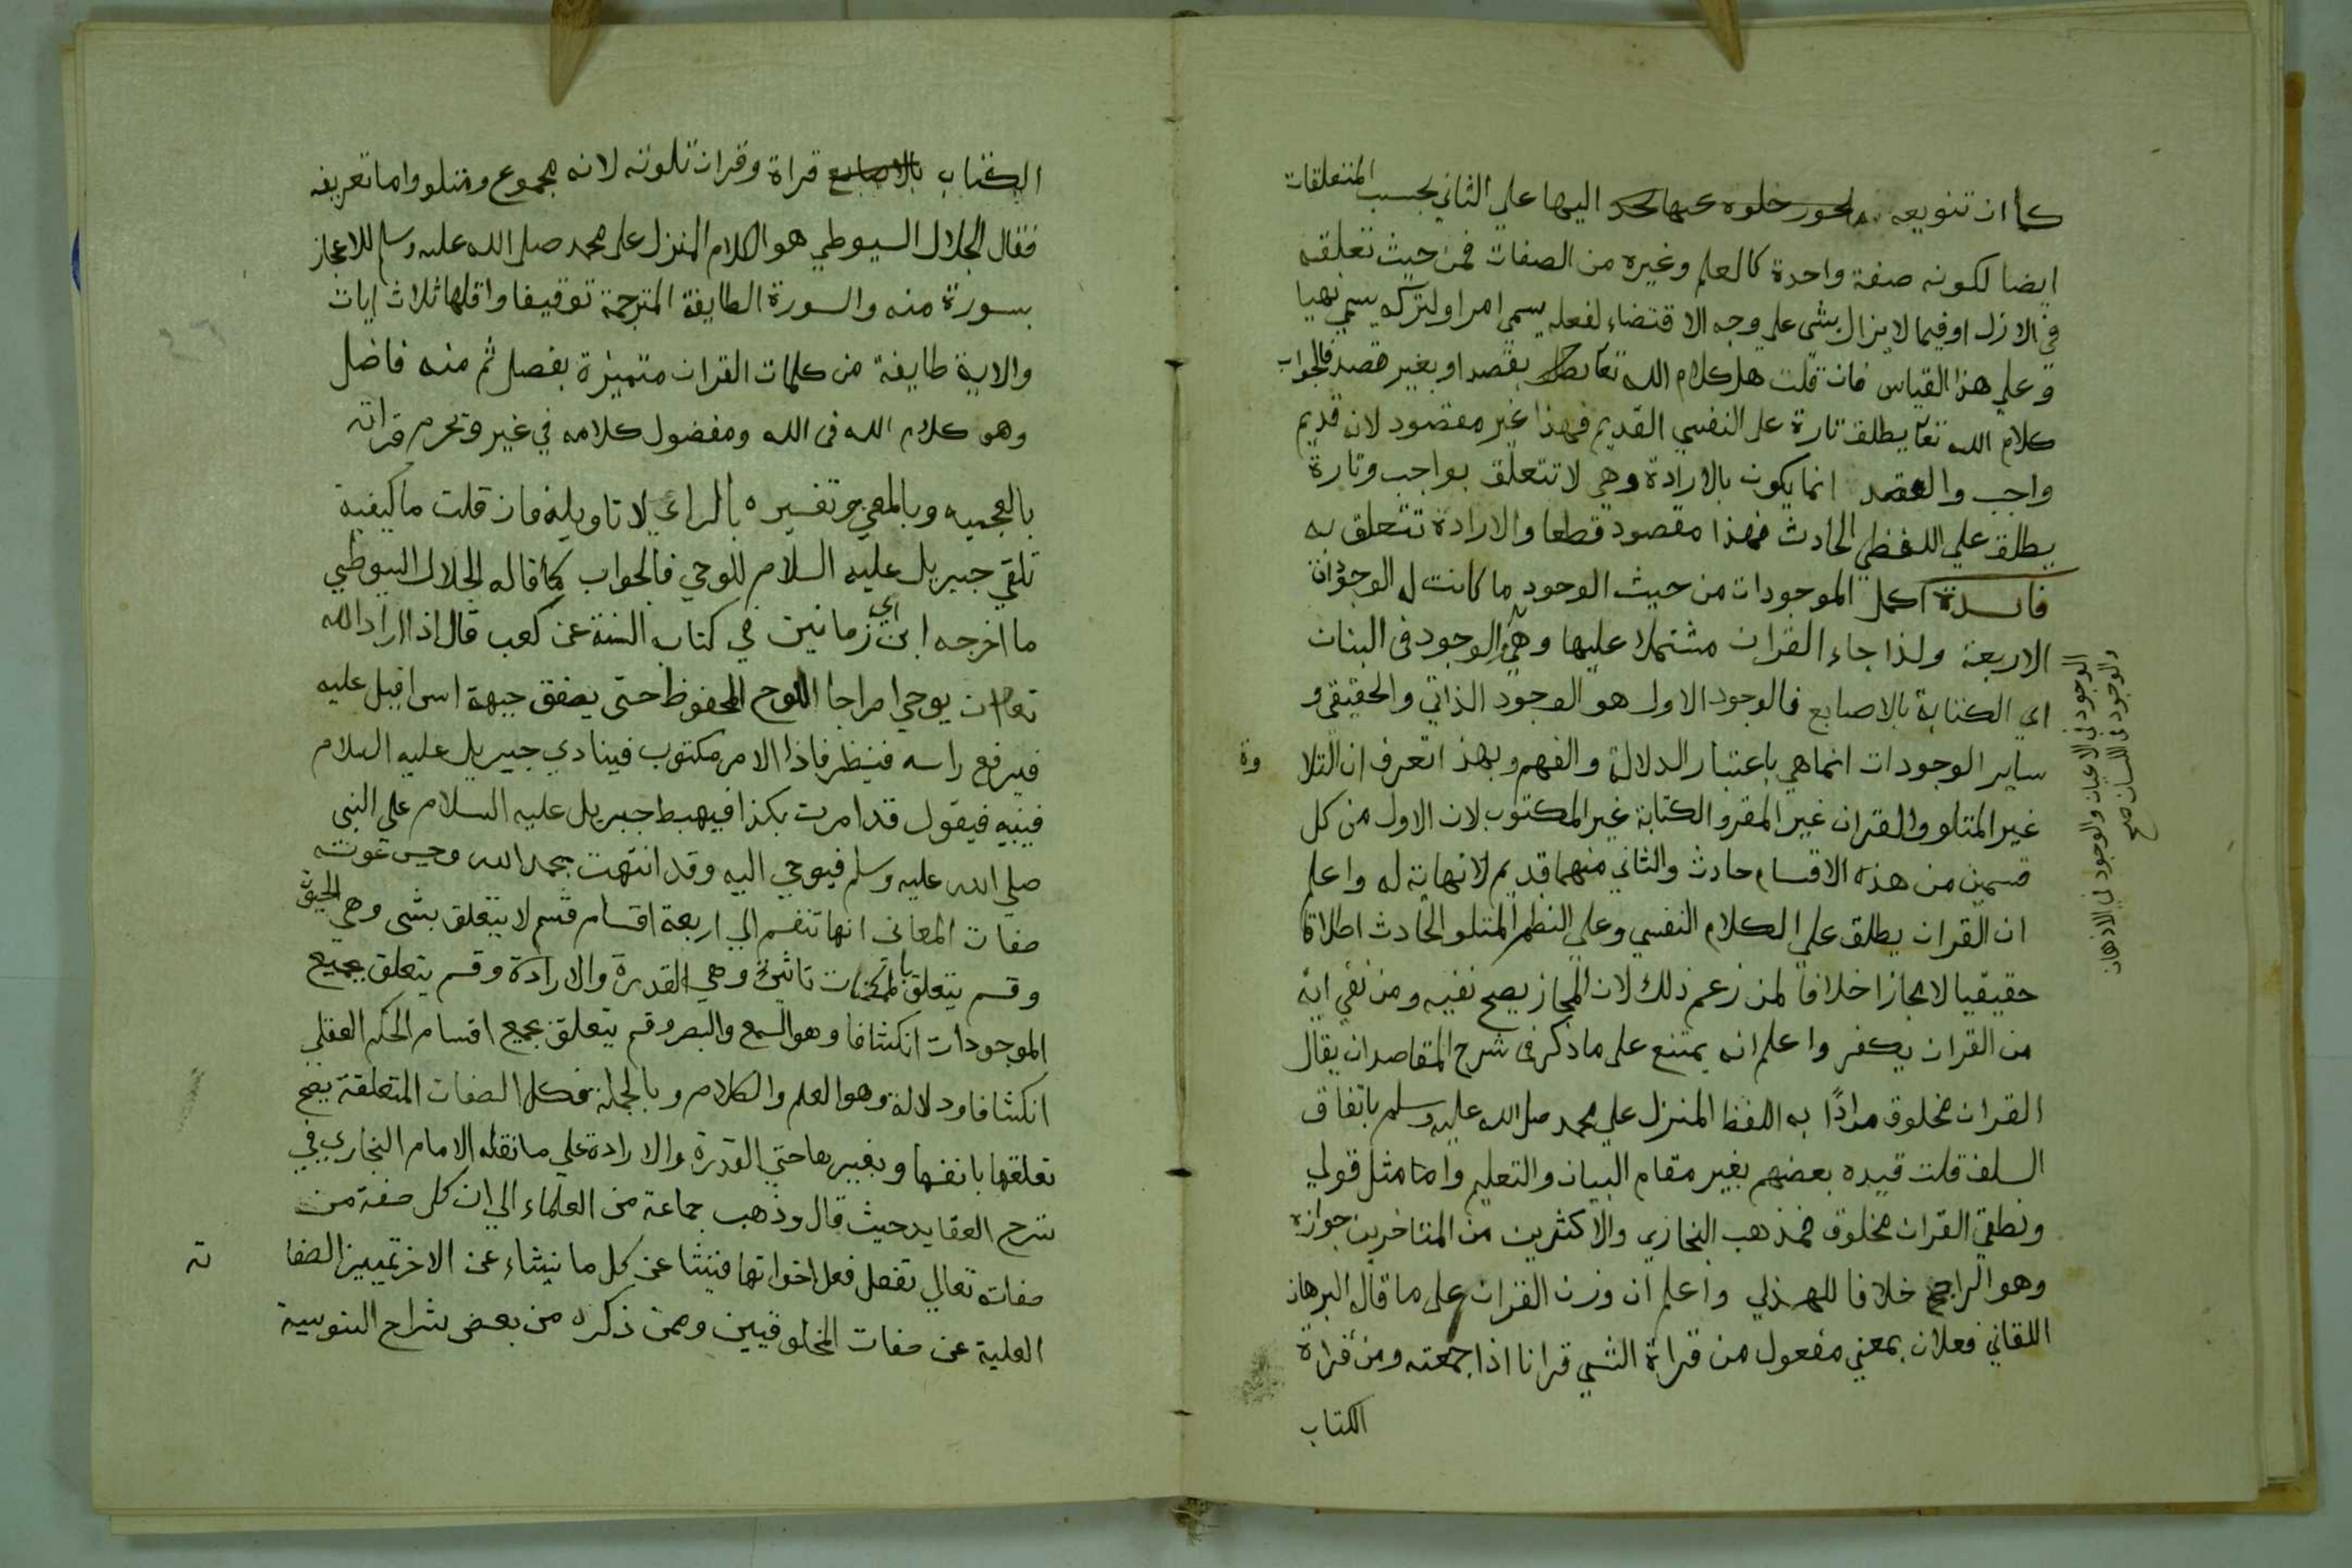 كما ان تنويعه اليها على الثاني بحسب المتعلقات
ايضا لكونه صفة واحدة كالعلم وغيره من الصفات فمن حيث تعلقه
في الازل او فيما لا يزال بشى على وجه الاقتضاء لفعله يسمي امرا او لتركه يسمي نهيا
وعلي هذا القياس فان قلت هل كلام الله تعا بقصد او بغير قصد فالجواب
كلام الله تعا يطلق تارة على النفسي القديم فهذا غير مقصود لانه قديم
واجب والقصد انما يكون بالارادة وهي لا تتعلق بواجب وتارة
يطلق علي اللفظي الحادث فهذا مقصود قطعا والارادة تتعلق به
فايدة اكمل الموجودات من حيث الوجود ما كانت له الوجودات
الاربعة ولذا جاء القران مشتملا عليها وهي الوجود في البنان
اي الكتابة بالاصابع فالوجود الاول هو الوجود الذاتي والحقيقي و
ساير الوجودات انما هي باعتبار الدلالة والفهم وبهذا تعرف ان التلا وة
غير المتلو والقران غير المقرو الكتابة غير المكتوب لان الاول من كل
قسمين من هذه الاقسام حادث والثاني منهما قديم لا نهاية له واعلم
ان القران يطلق علي الكلام النفسي وعلي النظم المتلو الحادث اطلاقا
حقيقيا لا مجازا خلافا لمن زعم ذلك لان المجاز يصح نفيه ومن نفي اية
من القران يكفر واعلم انه يمتنع على ما ذكر في شرح المقاصد ان يقال
القران مخلوق مرادًا به اللفظ المنزل علي محمد صلى الله عليه وسلم باتفاق
السلف قلت قيده بعضهم بغير مقام البيان والتعليم واما مثل قولي
ونطقي القران مخلوق فمذهب البخاري والاكثرين من المتاخرين جوازه
وهو الراجح خلافا للهذلي واعلم ان وزن القران على ما قال البرهان
اللقاني فعلان بمعني مفعول من قراة الشي قرانا اذا جمعته ومن قراة
الكتاب
الوجود في الاعيان والوجود في الاذهان
والوجود في اللسان صح
الكتاب قراة وقران تلوته لانه مجموع ومتلو واما تعريفه
فقال الجلال السيوطي هو الكلام المنزل على محمد صلى الله عليه وسلم للاعجاز
بسورة منه والسورة الطايفة المترجمة توقيفا واقلها ثلاث ايات
والاية طايفة من كلمات القران متميزة بفصل ثم منه فاضل
وهو كلام الله في الله ومفضول كلامه في غير وتحرم قراته
بالعجميه وبالمعني وتفسيره بالراي لا تاويله فان قلت ما كيفية
تلقي جبريل عليه السلام للوحي فالجواب كما قاله الجلال السيوطي
ما اخرجه ابن ابي زمانين في كتاب السنة عن كعب قال اذا اراد الله
تعا ان يوحي امرا جا اللوح المحفوظ حتى يصفق جبهة اسرافيل عليه
فيرفع راسه فينظر فاذا الامر مكتوب فينادي جبريل عليه السلام
فيقول قد امرت بكذا فيهبط جبريل عليه السلام علي النبي
صلي الله عليه وسلم فيوحي اليه وقد انتهت بحمد الله وحسن عونه
صفات المعاني انها تنقسم الي اربعة اقسام قسم لا يتعلق بشى وهي الحيوة
وقسم يتعلق بالممكنات تاثيرا وهي القدرة والارادة وقسم يتعلق بجميع
الموجودات انكشافا وهو السمع والبصر وقسم يتعلق بجميع اقسام الحكم العقلي
انكشافا ودلالة وهو العلم والكلام وبالجملة فكل الصفات المتعلقة يصح
تعلقها بانفسها وبغيرها حتي القدرة والارادة علي ما نقله الامام البخاري في
شرح العقايد حيث قال وذهب جماعة من العلماء الي ان كل صفة من
صفاته تعالي تفعل فعل اخواتها فينشا عن كل ما ينشاء عن الاخر تمييز الصفا ته
العلية عن صفات المخلوقيين وممن ذكره من بعض شراح السنوسية